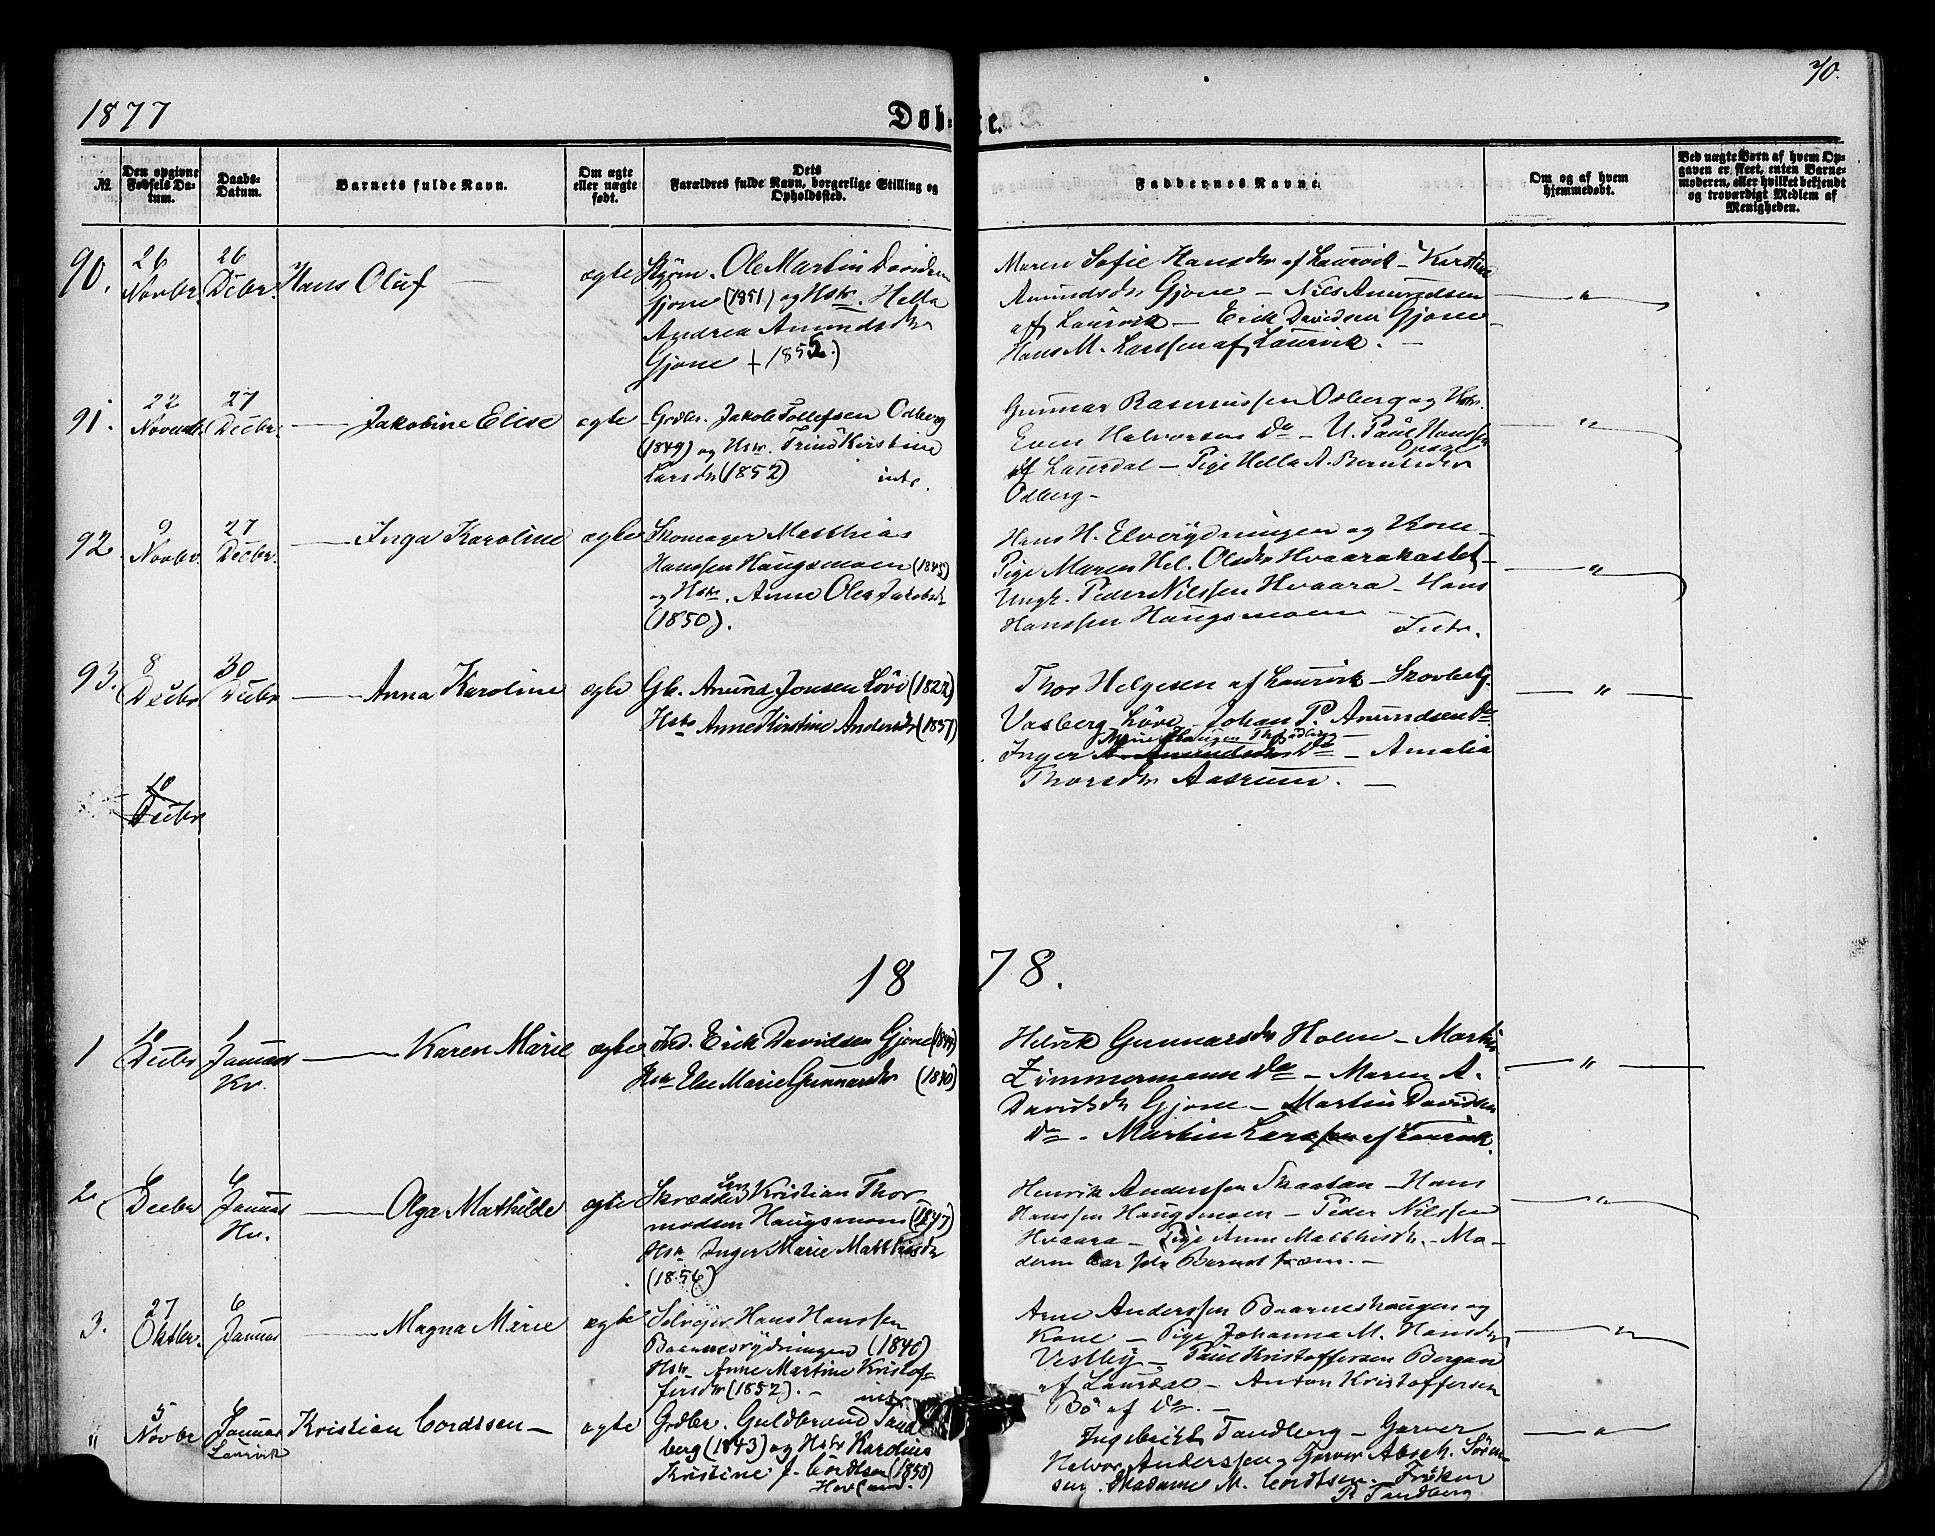 1877
Døb
te.
70.
№
Den opgivne Fødsels Datum.
Daabs-Datum.
Barnets fulde Navn.
Om ægte eller uægte født.
Dets Forældres fulde Navn, borgerlige Stilling og Opholdssted.
Faddernes Navne.
Om og af hvem hjemmedøbt.
Ved uægte Børn af hvem Opgaven er skeet, enten Barnemoderen, eller hvilket bekjendt og troværdigt Medlem af Menigheden.
90.
26 Novbr.
26 Decbr.
Hans Oluf
ægte
Ole Martin Davidsen
Gjone (1851) og Hstr. Hella
Andrea Amundsdr
Gjone + 1855.)
Maren Sofie Hansdr af Laurvik – Kirstine
Amundsdr Gjone – Nils Amundsen
af Laurvik – Erik Davidsen Gjone –
Hans M. Larssen af Laurvik. –
91.
22 Novembr.
27 Decbr.
Jakobine Elise
ægte
Grdbr. Jakob Tollefsen Odberg
(1849) og Hstr. Trine Kirstine
Larsdr (1852) intr.
Gunnar Rasmussen Odberg og Hstr.
Even Halvorsen Do – U. Paul Hanssen
Opsal
af Laurdal – Pige Hella A. Berntsdr
Odberg –
92.
9 Novbr.
27 Decbr.
Inga Karoline
ægte
Skomager Matthias
Hanssen Haugsmoen (1845)
og Hstr. Anne Olea Jakobsdr
(1850).
Hans H. Elverydningen og Kone –
Pige Maren Hel. Olsdr Hvaarakastet –
Ungk. Peder Nilssen Hvaara – Hans
Hanssen Haugsmoen –
Intr.
93.
8 Decbr
30 Decbr
Anna Karoline
ægte
Gb. Amund Jonsen Løvi (1822)
Hstr Anne Kirstine Andersdr (1837)
Thor Helgesen af Laurvik – Skovbetj.
Vasberg Løve – Johan P. Amundsen Do
Inger Amundsdr Do – Amalia
Thorsdr Aasrum. –
10
Decbr
1878.
1
10 Decbr
1 Januar
Kv.
Karen Marie
ægte
Ind. Erik Davidsen Gjone (1844)
Hstr Else Marie Gunnarsdr (1840)
Helvik Gunnarsdr Holm – Martin
Zimmermann Do – Maren A.
Davidsdr Gjone – Martin Davidsen
Do – Martin Larssen af Laurvik.
2
6 Decbr
6 Januar
Hv.
Olga Mathilde
ægte
Skrædder Kristian Thor
modsen Haugsmoen (1847)
Hstr Inger Marie Matthisdr
(1856)
Henrik Anderssen Skaatan – Hans
Hanssen Haugsmoen – Peder Nilssen
Hvaara – Pige Anne Matthisdr. – Mo–
deren bar selv Barnet frem. –
3.
27 Oktbr.
6 Januar
Magna Marie
ægte
Selvejer Hans Hanssen
Baarnesrydningen (1840)
Hstr Anne Martine Kristof–
fersdr (1852). –
Arne Anderssen Baarneshaugen og
Kone – Pige Johanna M. Hansdr
Vestby – Paul Kristoffersen Bergan
af Laurdal – Anton Kristoffersen
Bö af Do. –
"
5 Novbr
Januar
Laurvik
Kristian Cordtsen –
ægte
Grdbr. Guldbrand Tand
berg (1843) og Hstr Karoline
Kristine J. Cordtsen (1850)
Hovland.
Ingebrikt Tandberg – Garver
Halvor Anderssen – Garver Absch. Søren–
sen. Madame M. Cordtsen – Frøken
P. Tandberg